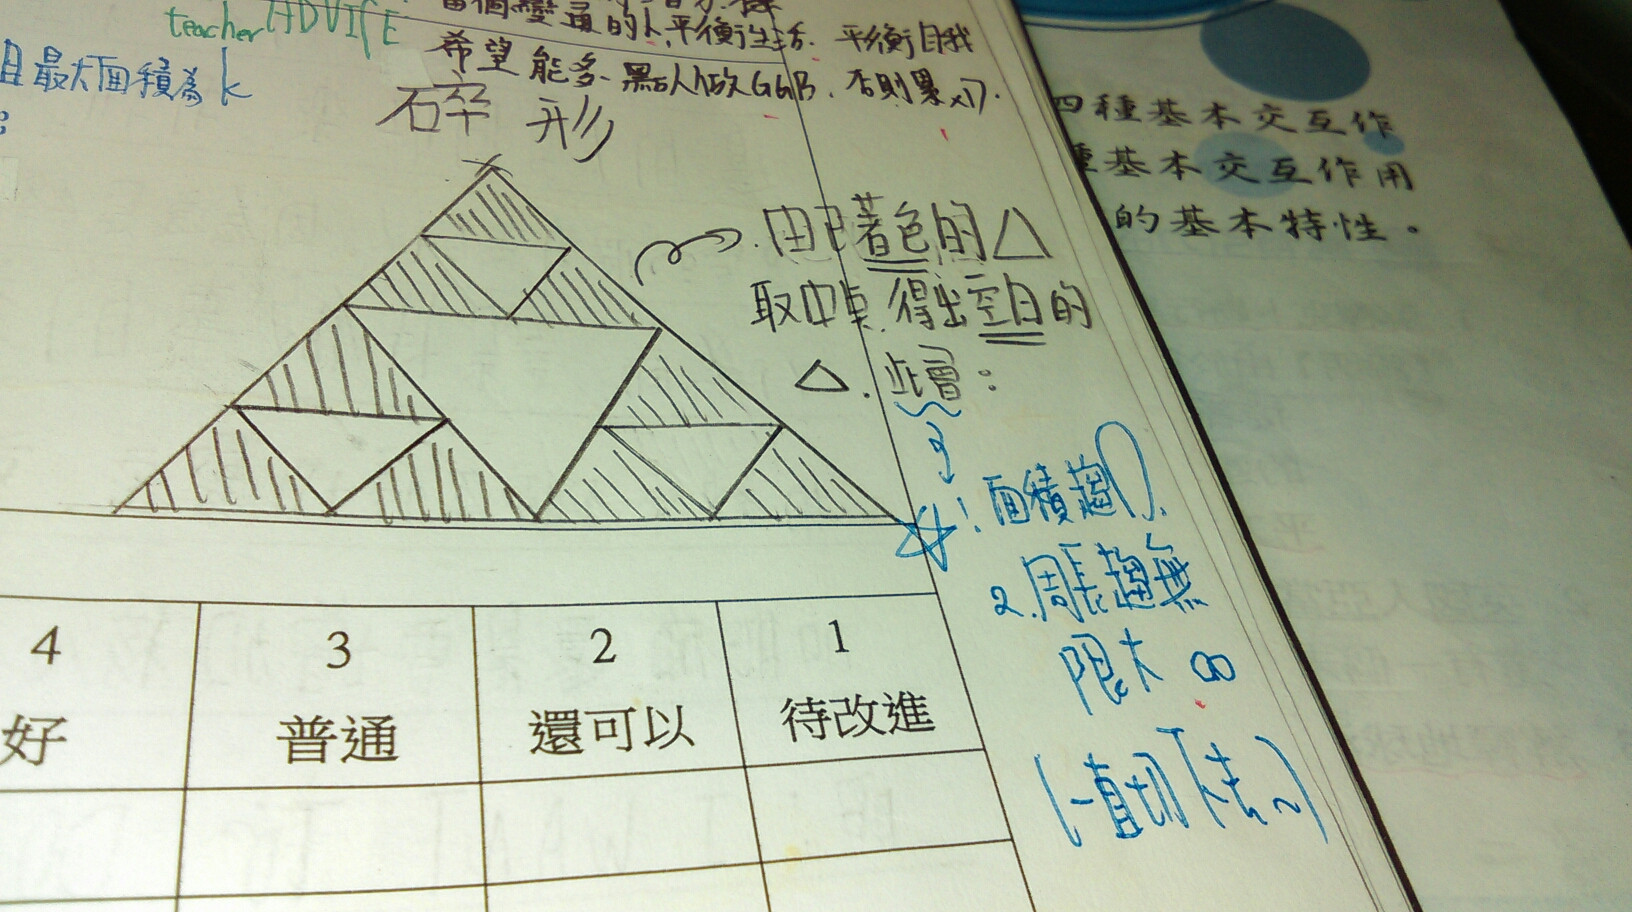 teacher ADVICE
且最大面積為 k
的人平衡生活. 平衡自我
希望能多 點人做GGB, 否則累
碎形
由已著色的△
取中點,得出空白的
△. 此會:
☆ 1. 面積趨0.
2. 周長趨無
限大 ∞
(一直切下去~)
4 3 2 1
好 普通 還可以 待改進
四種基本交互作
種基本交互作用
的基本特性。